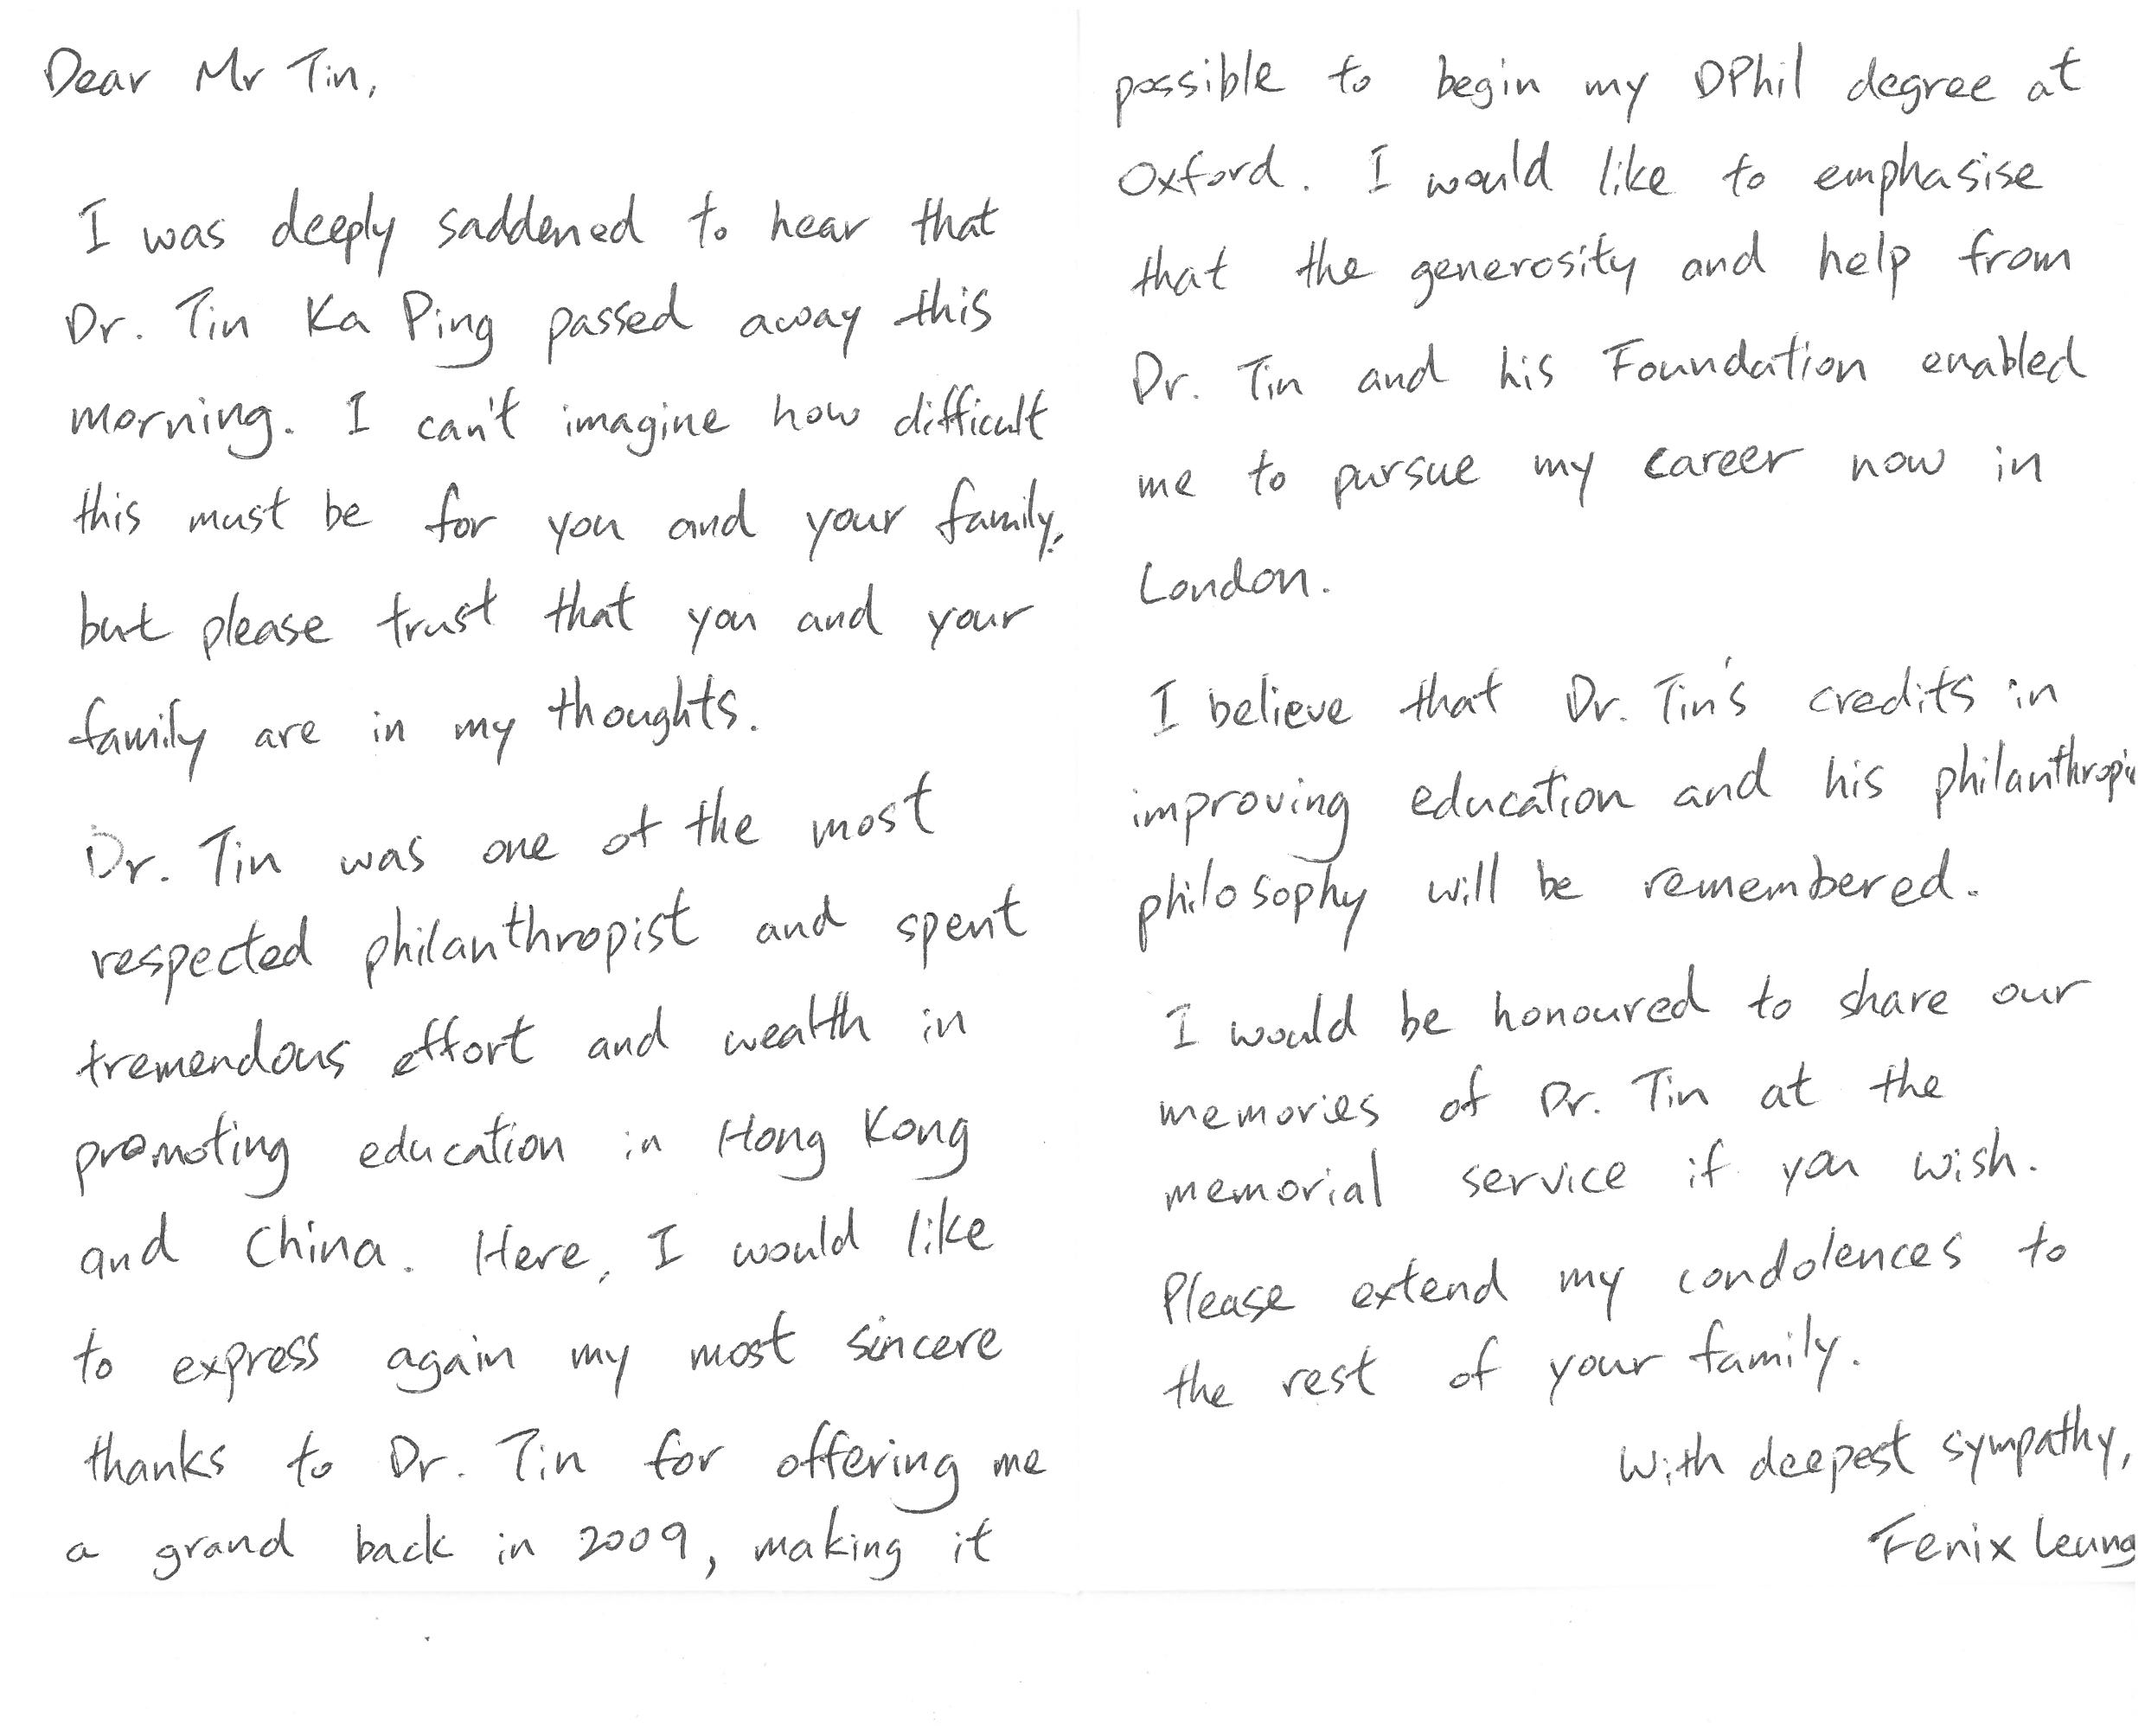 Dear Mr Tin,
I was deeply saddened to hear that
Dr. Tin Ka Ping passed away this
morning. I can't imagine how difficult
this must be for you and your family,
but please trust that you and your
family are in my thoughts.
Dr. Tin was one of the most
respected philanthropist and spent
tremendous effort and wealth in
promoting education in Hong Kong
and China. Here, I would like
to express again my most sincere
thanks to Dr. Tin for offering me
a grand back in 2009, making it
possible to begin my DPhil degree at
Oxford. I would like to emphasise
that the generosity and help from
Dr. Tin and his Foundation enabled
me to pursue my career now in
London.
I believe that Dr. Tin's credits in
improving education and his philanthropic
philosophy will be remembered.
I would be honoured to share our
memories of Dr. Tin at the
memorial service if you wish.
Please extend my condolences to
the rest of your family.
With deepest sympathy,
Fenix Leung